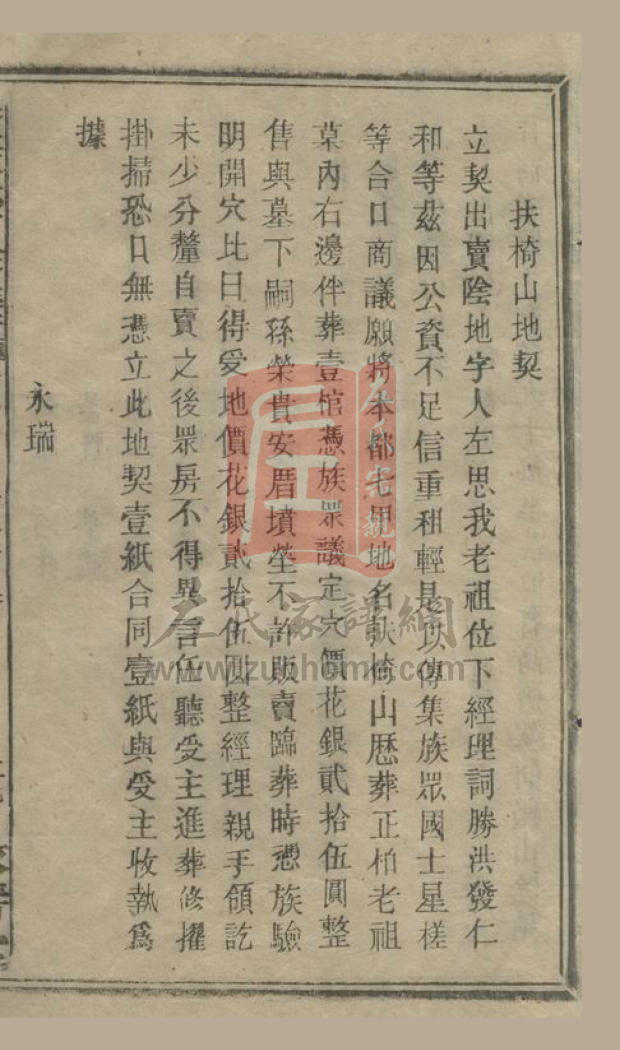 扶椅山地契
立契出賣陰地字人左思我老祖位下經理詞勝洪發仁
和等茲因公資不足信重租輕是以傳集族眾國士星槎
等合口商議願將本都老里地名扶椅山歷葬正柏老祖
墓內右邊伴葬壹棺憑族眾議定穴價花銀貳拾伍圓整
售與墓下嗣孫榮貴安厝墳塋不許販賣臨葬時憑族驗
明開穴比日得受地價花銀貳拾伍圓整經理親手領訖
未少分釐自賣之後眾房不得異言伍聽受主進葬修擢
掛掃恐口無憑立此地契壹紙合同壹紙與受主收執為
據
永瑞
左氏家譜網
www.zuohome.com